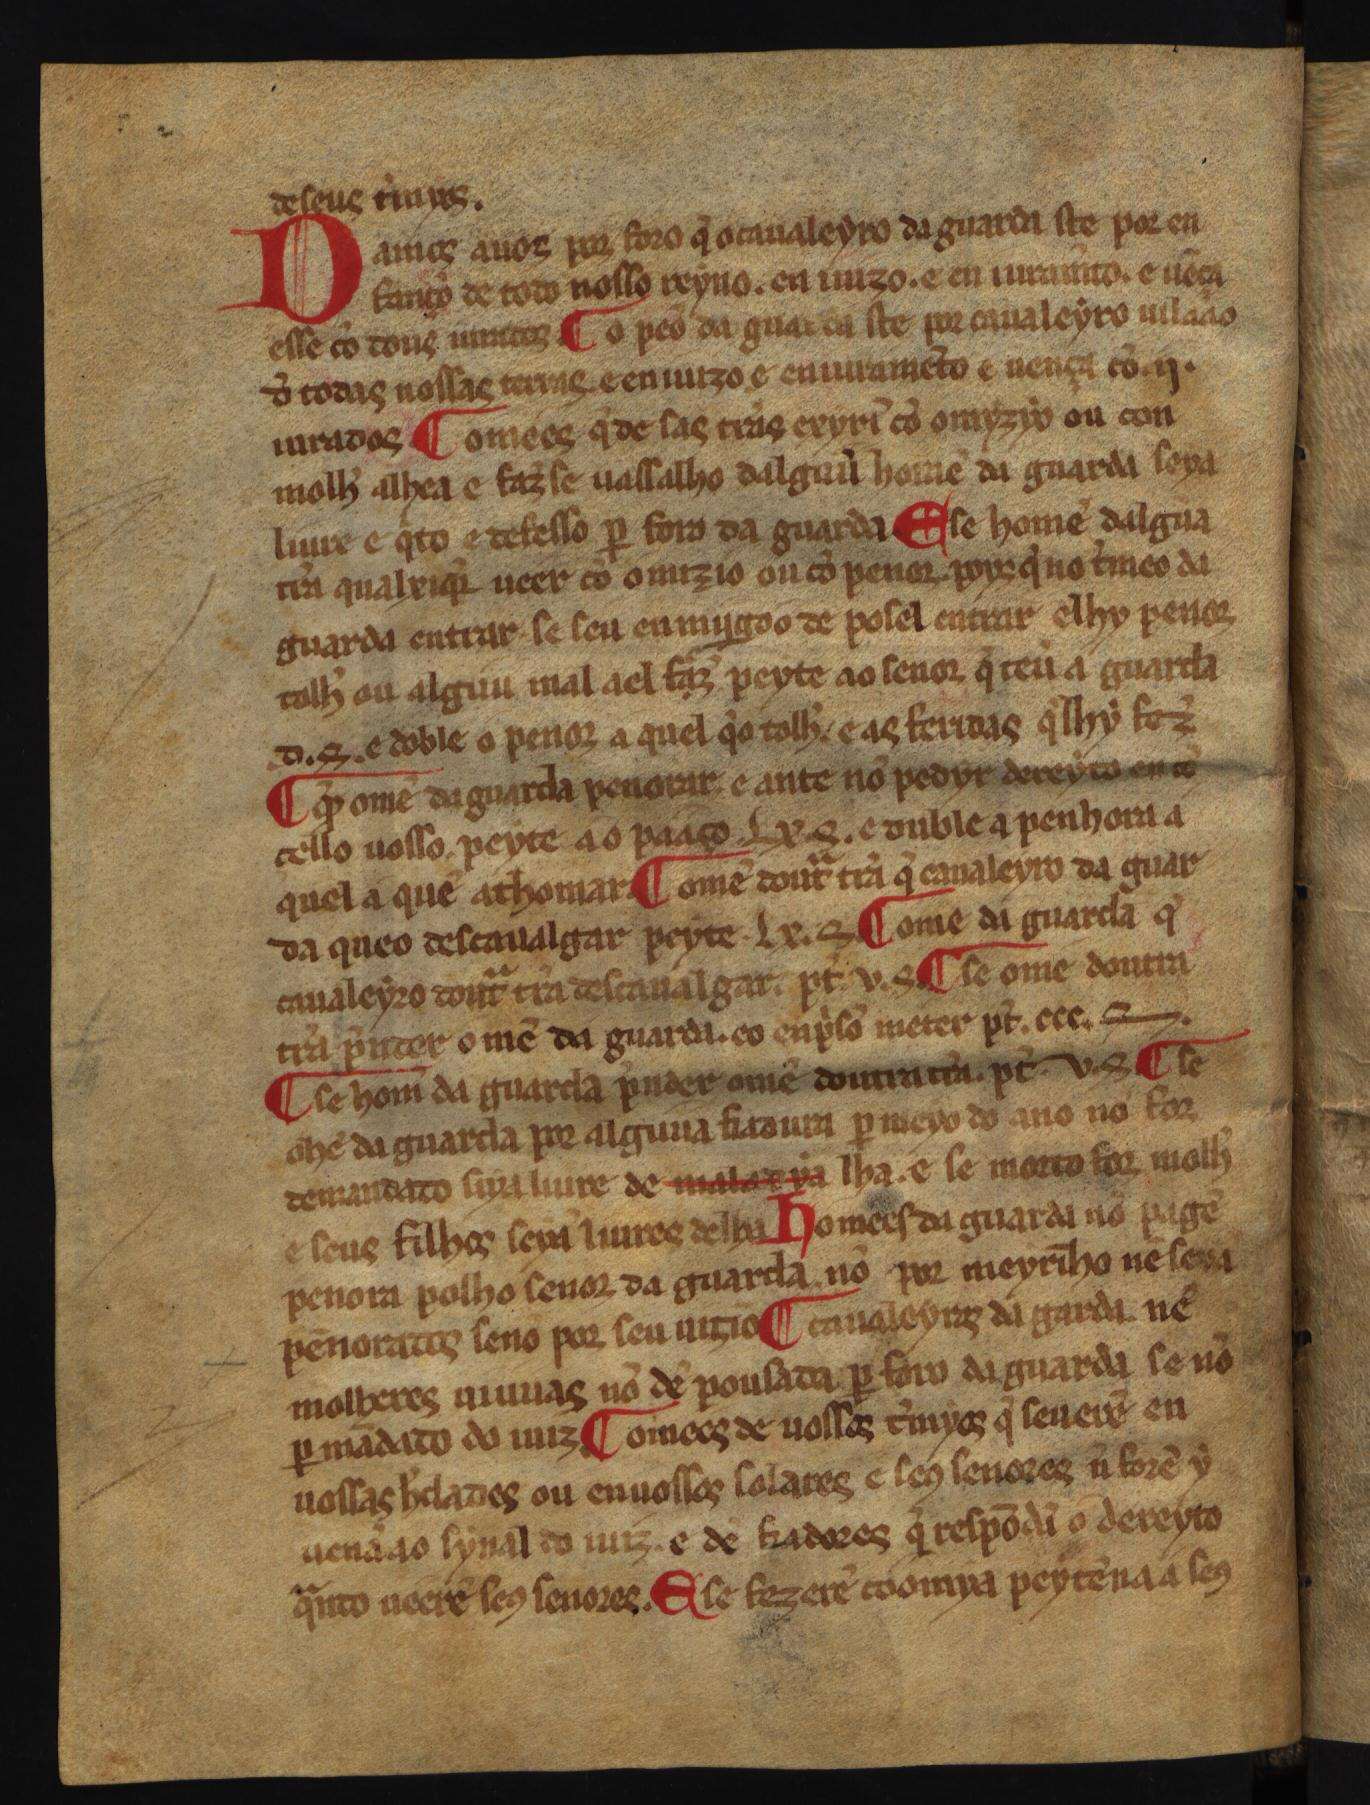 de seus t'mıyos.
Damos auos por foro q̄ o caualeyro da guarda ste por en
fançō de todo nosso reyno. en iuızo. e en iuramēto. e uēça
esse cō dous iurados ¶ o peō da guarda ste por caualeyro uılaāo
d' todas nossas terras e en iuızo e en iuramēto e uença cō. ıj.
iurados ¶ omees q̄ de sas t'ras exyrē cō omyzyo ou con
molh' alhea e faz'se uassalho dalguū homē da guarda seya
liure e q̄to e defesso p foro da guarda E se homē dalgūa
t'ra qual xiq̄r ueer cō omızıo ou cō penor. poys q̄ no t'mēo da
guarda entrar. se seu enmıjgoo de pos el entrar e lhy penor
tolh' ou alguu mal a el faz' peyte ao senor q̄ teu' a guarda
.D. S. e doble o penor a quel q̄o tolh'. e as feridas q̄ lhy fez'
¶ q̄ omē da guarda penorar. e ante nō pedyr dereyto en cō
cello uosso. peyte ao paaço. Lx. S. e duble a penhora a
quel a quē a thomar ¶ omē dout̄ t'ra q̄ caualeyro da guar
da queo descaualgar peyte. Lx. S ¶ omē da guarda q̄
caualeyro dout̄ t'ra descaualgar. pt'. v. S. ¶ se omē doutra
t'ra p'nder omē da guarda. eo en p'sō meter pt'. ccc. S.
¶ se hom̄ da guarda p'nder omē doutra t'ra. pt'. v. S ¶ se
ohē da guarda por alguua fiadura p meyo do ano nō for
demandado seya liure de maladya lha. e se morto for molh'
e seus filhos seyā liures delha homees da guarda nō pagē
penora polho senor da guarda. nō por meyrīho nē seya
penorados senō por seu uızıo ¶ caualeyros da garda. nē
molheres uıuuas nō dē pousada p foro da guarda se nō
p mādado do iuız ¶ omees de uossos t'mıyos q̄ seuerē en
uossas h'dades ou en uossos solares e seus senores n̄ forē y
uenā ao synal do iuız. e dē fiadores q̄ respōdā o dereyto
q̄nto ueerē seus senores. E se fezerē coomya peytēna a seus